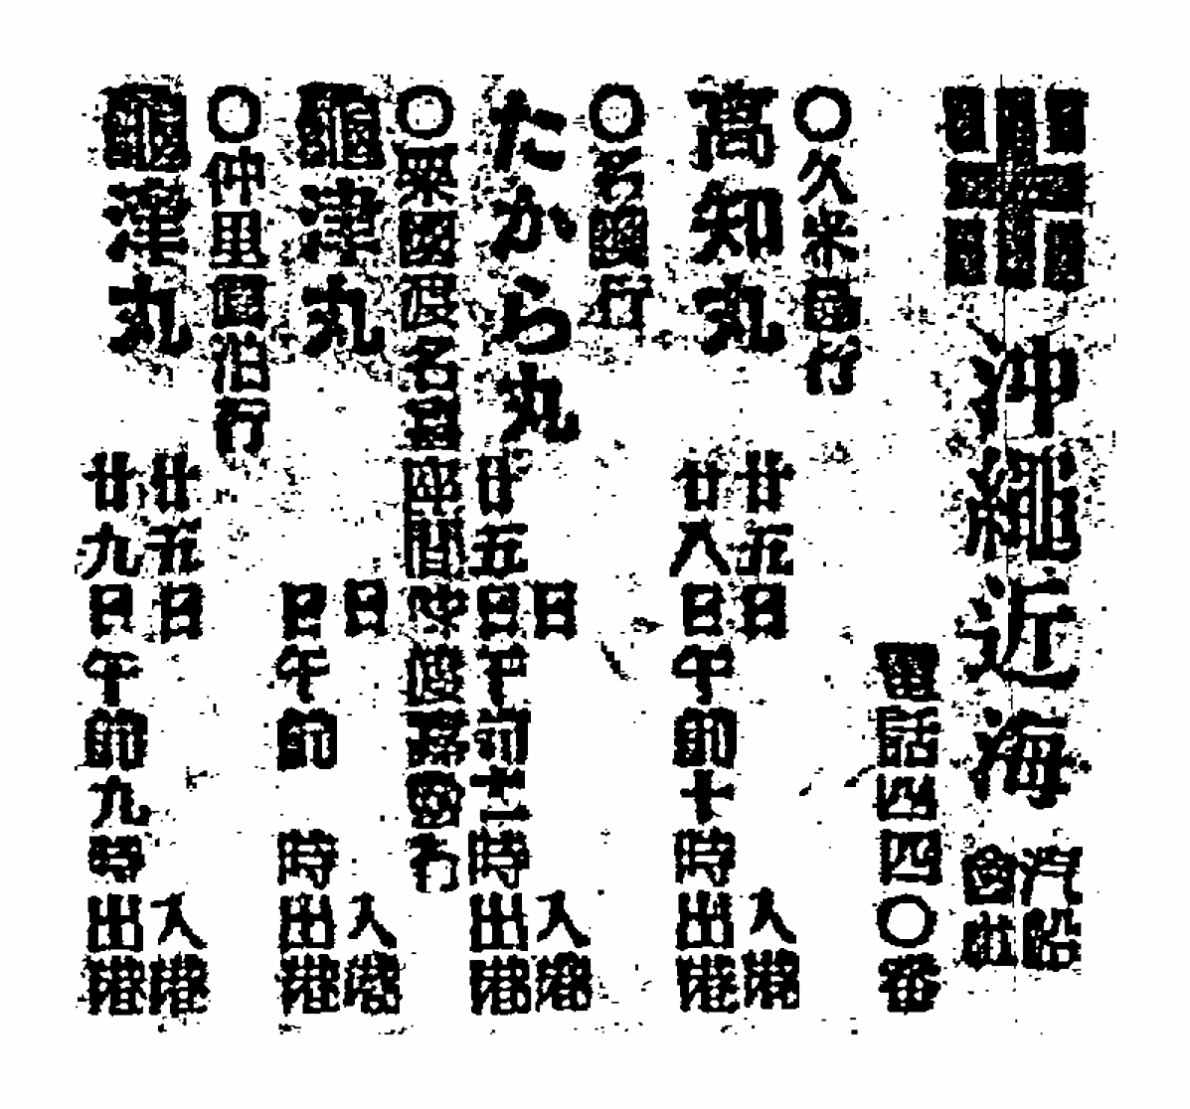 沖繩近海汽船會社
電話四四〇番
〇久米島行
高知丸
廿五日入港
廿八日午前十時出港
たから丸
日入港
廿五日午前時出港
〇粟國渡名喜座間味渡嘉敷行
龜津丸
日入港
日午前 時出港
〇仲里泊行
龜津丸
廿五日入港
廿九日午前九時出港